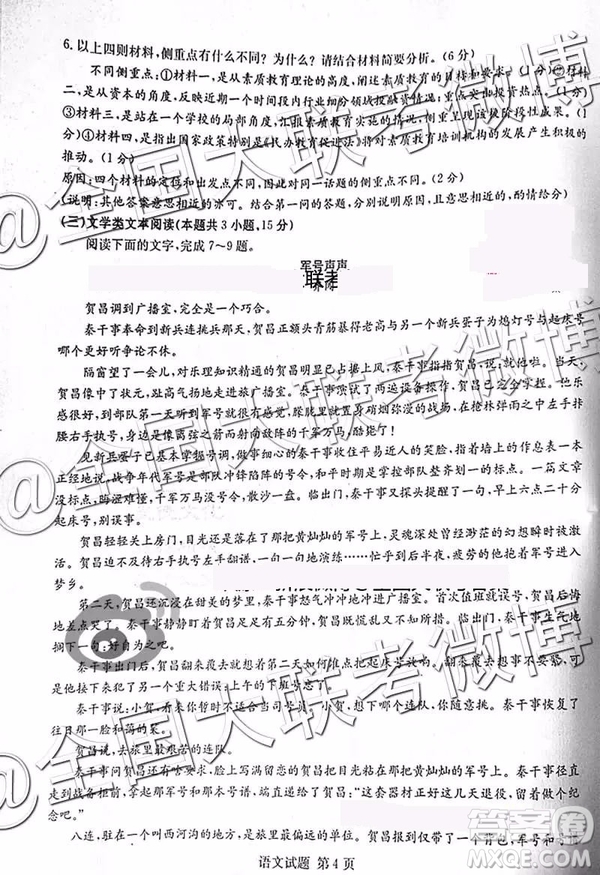 6. 以上四则材料,侧重点有什么不同? 为什么? 请结合材料简要分析。(6 分)
不同侧重点:①材料一,是从素质教育理论的高度,反映素质教育的目标和要求。(1 分)②材料
二,是从资本的角度,反映近期一个时间段内行业细分领域投融资情况,凸显重点投资热点。(1 分)
③材料三,是站在一个学校的局部角度,汇报素质教育实施的情况,以体现该校阶段性成果。(1
分)④材料四,是指出国家政策特别是《民办教育促进法》将对素质教育培训机构的发展产生积极的
推动。(1 分)
原因:四个材料的定位和出发点不同,以致对同一话题的侧重点不同。(2 分)
(说明:其他答案中,只要是结合第一问的答题,分别回答,且意思相近的,酌情给分)
(三)文学类文本阅读(本题共 3 小题,15 分)
阅读下面的文字,完成 7~9 题。
军号声声
联考
贺昌调到广播室,完全是一个巧合。
秦干事奉命到新兵连挑兵那天,贺昌正额头青筋暴得老高与另一个新兵蛋子为熄灯号与起床号
哪个更好听争论不休。
隔窗望了一会儿,对乐理知识精通的贺昌明显已占据上风,秦干事指指贺昌说,就你了。当天,
贺昌像中了状元,趾高气扬地走进旅广播室。秦干事演试了两遍设备操作,贺昌就基本掌握。贺昌
想起,到部队第一天听到军号就很有感觉,朦胧里就置身硝烟弥漫的战场,在枪林弹雨之中左手扞
腰右手执号,像是离弦之箭一般奔向敌阵的千军万马,酷毙了!
见新兵蛋子已基本掌握号调,秦干事依然保持住平易近人的笑容,指着墙上的作息表一本
正经地说,战争年代军号是部队冲锋陷阵的号令,和平时期是掌控部队整齐划一的标点。一篇文章
若只有字没有标点,晦涩难懂,千军万马没有军号就乱成一盘散沙。临出门,秦干事说,早上六点二十分
起床号,别误事。
贺昌轻轻关上房门,目光还是落在了那把黄灿灿的军号上,灵魂深处曾经渺茫的幻想瞬时被激
活。贺昌迫不及待右手执号左手翻谱,一句一句地演练……忙乎到后半夜,疲劳的他抱着军号进入
梦乡。
第二天,贺昌还沉浸在甜美的梦里,秦干事怒气冲冲地冲进广播室。首次值班就误号,贺昌后悔
地差点哭了。秦干事静静盯着贺昌足足有五分钟,贺昌既慌乱又不知所措。临出门,秦干事说,下不
为例。
秦干事出门后,贺昌翻来覆去想着第二天如何准点把起床号放响。翻来覆去想的结果,使得
他接下来又犯了一个重大错误:上午的下班号忘了。
秦干事说:小贺,看来你暂时不适合干这个。小贺,你想想去哪一个连队。秦干事恢复了
往日的那一脸和蔼的笑。
贺昌说,去旅里最艰苦的连队。
秦干事问贺昌还有啥要求,脸上写满沮丧的贺昌把目光粘在那把黄灿灿的军号上。秦干事径直
走到战备柜前,取出那把军号和那本号谱,端到贺昌面前说:“这套器材正好这几天退役,你留个纪
念吧。”
八连,驻在一个叫西河沟的地方,是旅里最偏远的单位。贺昌报到仅带了一个背包,军号和号
语文试题 第 4 页
@全国大联考微博
答案圈
MXQE.COM